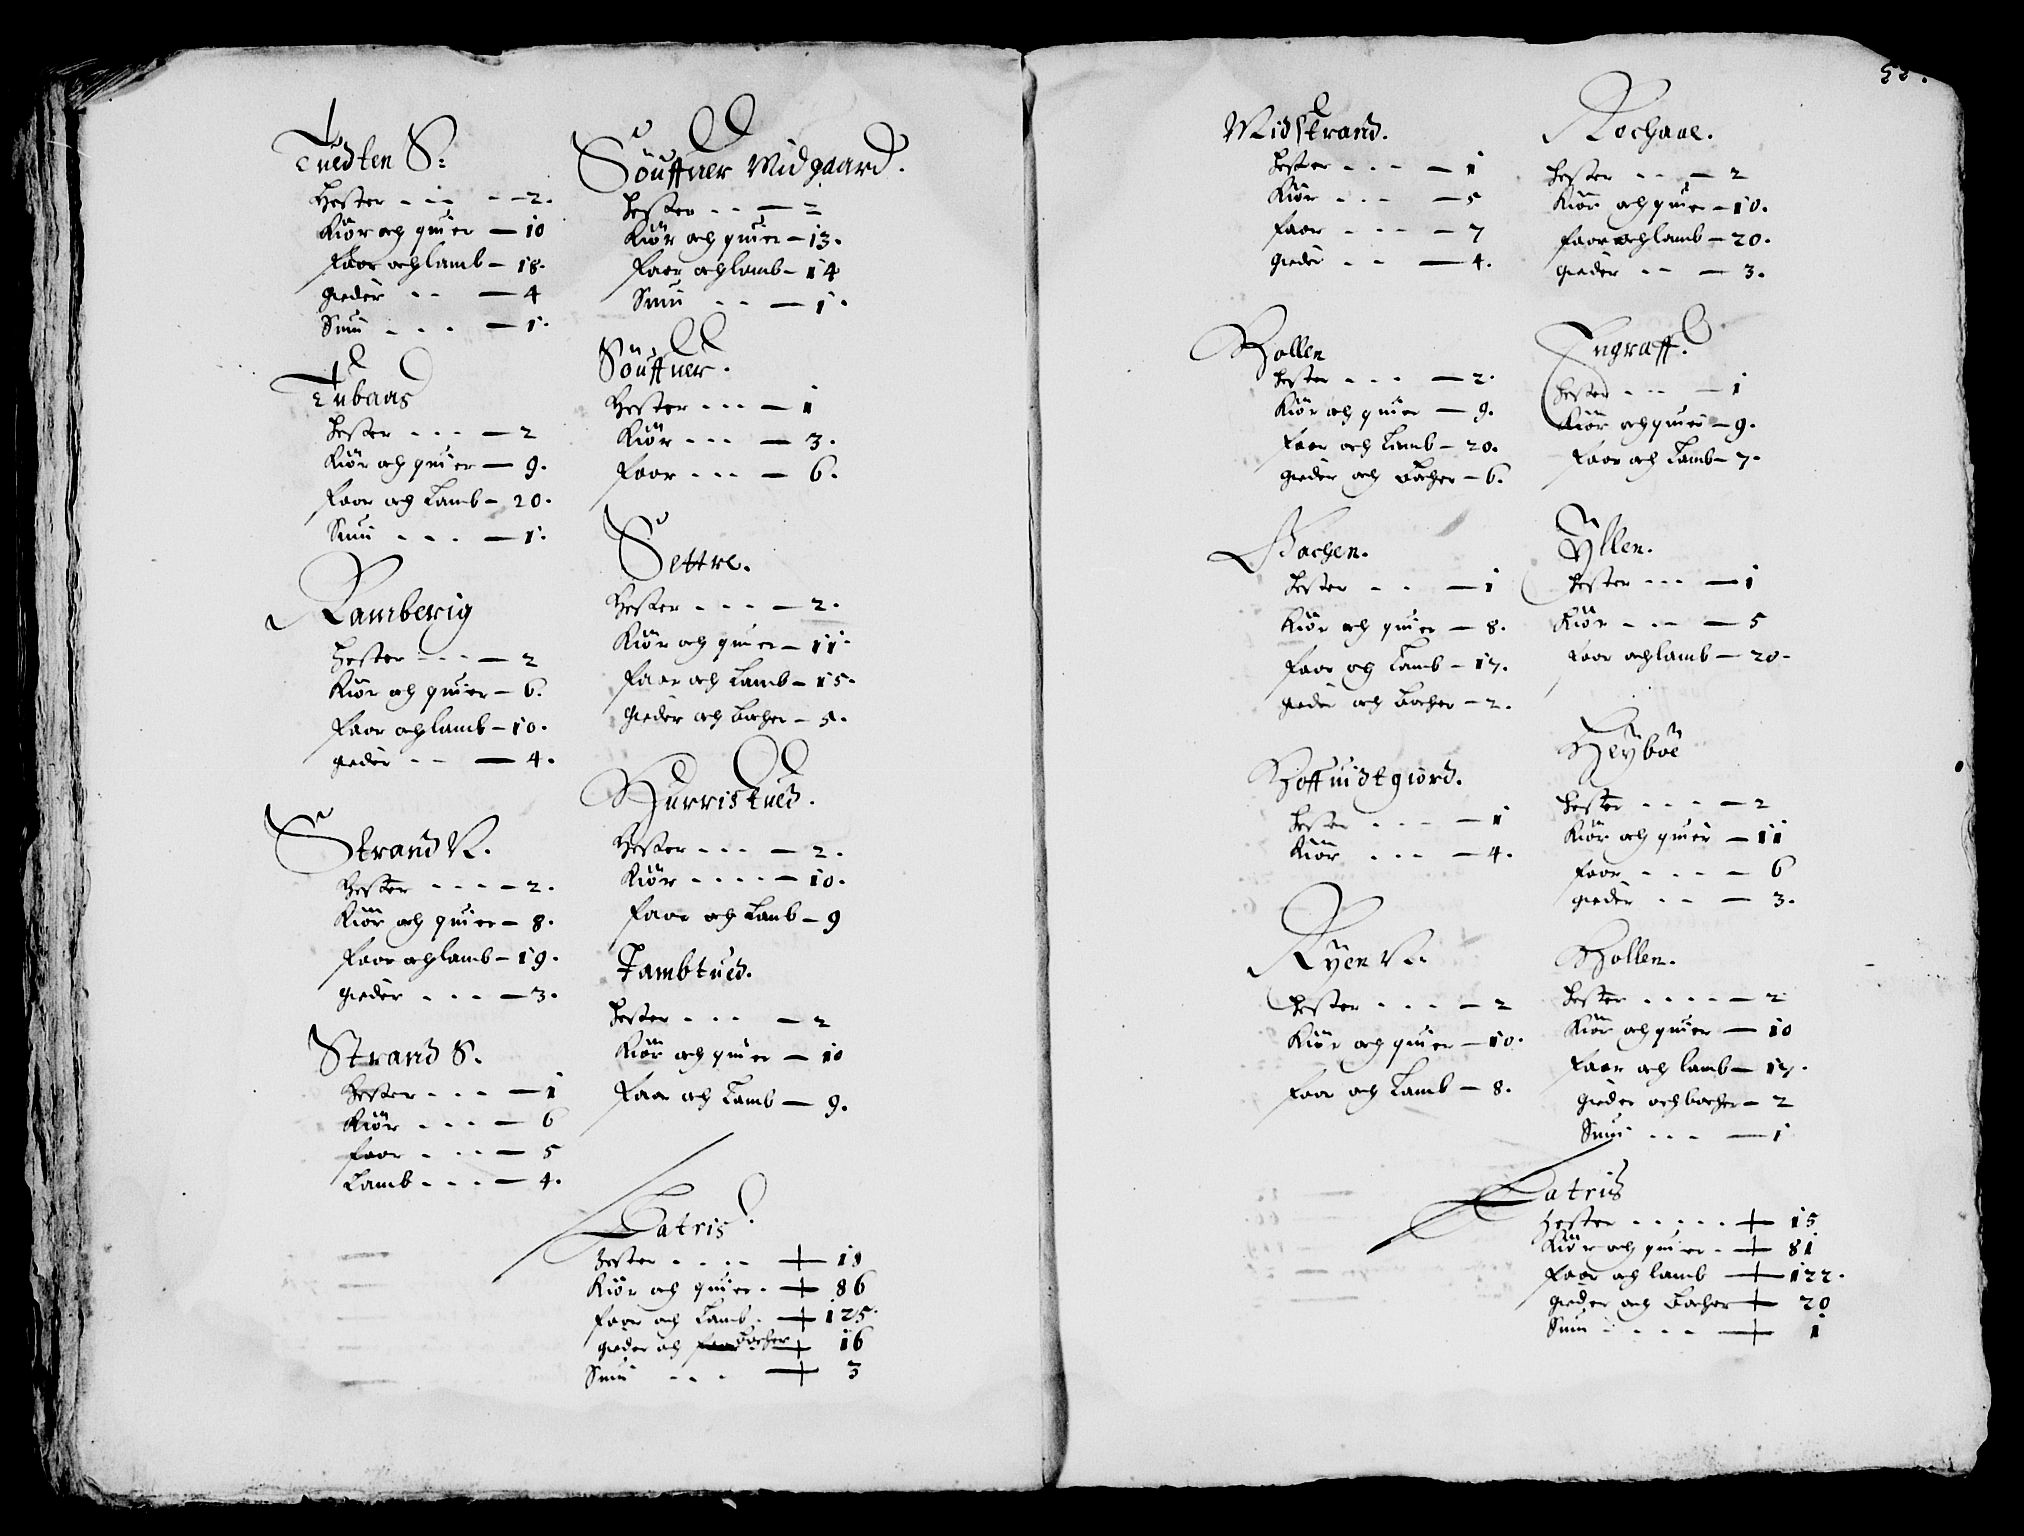 Tuedten S:
Hester - - - — 2.
Kiör och quier — 10
Faar och lamb — 18.
gieder - - — 4
Suin - - - — 1.
Tubaas
Hester - - - — 2
Kiör och quier — 9.
Faar och Lamb — 20.
Suin - - - — 1.
Ramberig
Hester - - - — 2
Kiör och quier — 6.
Faar och lamb — 10.
gieder - - — 4.
Strand N.
Hester - - - — 2.
Kiör och quier — 8.
Faar och lamb — 19.
gieder - - - — 3.
Strand S.
Hester - - - — 1
Kiör - - - — 6
Faar - - - — 5
Lamb - - - — 4.
Söuffner Midgaard.
Hester - - — 2
Kiör och quier — 13.
Faar och lamb — 14
Suin - - — 1.
Söuffner.
Hester - - - — 1
Kiör - - - — 3.
Faar - - - — 6.
Settre.
Hester - - - — 2.
Kiör och quier — 11
Faar och Lamb — 15.
gieder och bocher — 5.
Hurristued.
Hester - - - — 2.
Kiör - - - - — 10.
Faar och Lamb — 9
Tambtued.
Hester - - - — 2
Kiör och quier — 10
Faar och Lamb — 9.
Latris.
Hester - - - - + 19
Kiör och quier - + 86
Faar och Lamb - + 125.
gieder och bocher + 16
Suin - - - + 3
52.
Midstrand.
Hester - - - — 1
Kiör - - - — 5
Faar - - - — 7
gieder - - — 4.
Hollen
Hester - - - — 2.
Kiör och quier — 9.
Faar och Lamb — 20.
gieder och Bocher — 6.
Bachen.
Hester - - — 1
Kiör och quier — 8.
Faar og Lamb — 17.
gieder och Bocher — 2.
Hoffuidtgiord.
Hester - - - — 1
Kiör - - - — 4.
Ryen N.
Hester - - - — 2
Kiör och quier — 10.
Faar och Lamb — 8.
Rochaae.
Hester - - — 2
Kiör och quier — 10.
Faar och lamb — 20.
gieder - - — 3.
Engraff.
Hester - - - — 1
Kiör och quier — 9.
Faar och Lamb — 7.
Yllen.
Hester - - - — 1
Kiör - - - — 5
Faar och lamb — 20.
Heyböe
Hester - - - — 2
Kiör och quier — 11
Faar - - - - — 6
gieder - - — 3.
Hollen.
Hester - - - - — 2
Kiör och quier — 10
Faar och lamb — 17.
gieder och bocher — 2
Suin - - - — 1
Latris
Hester - - - - - + 15
Kiör och quier - + 81
Faar och lamb + 122.
gieder och Bocher + 20
Suin - - - - + 1